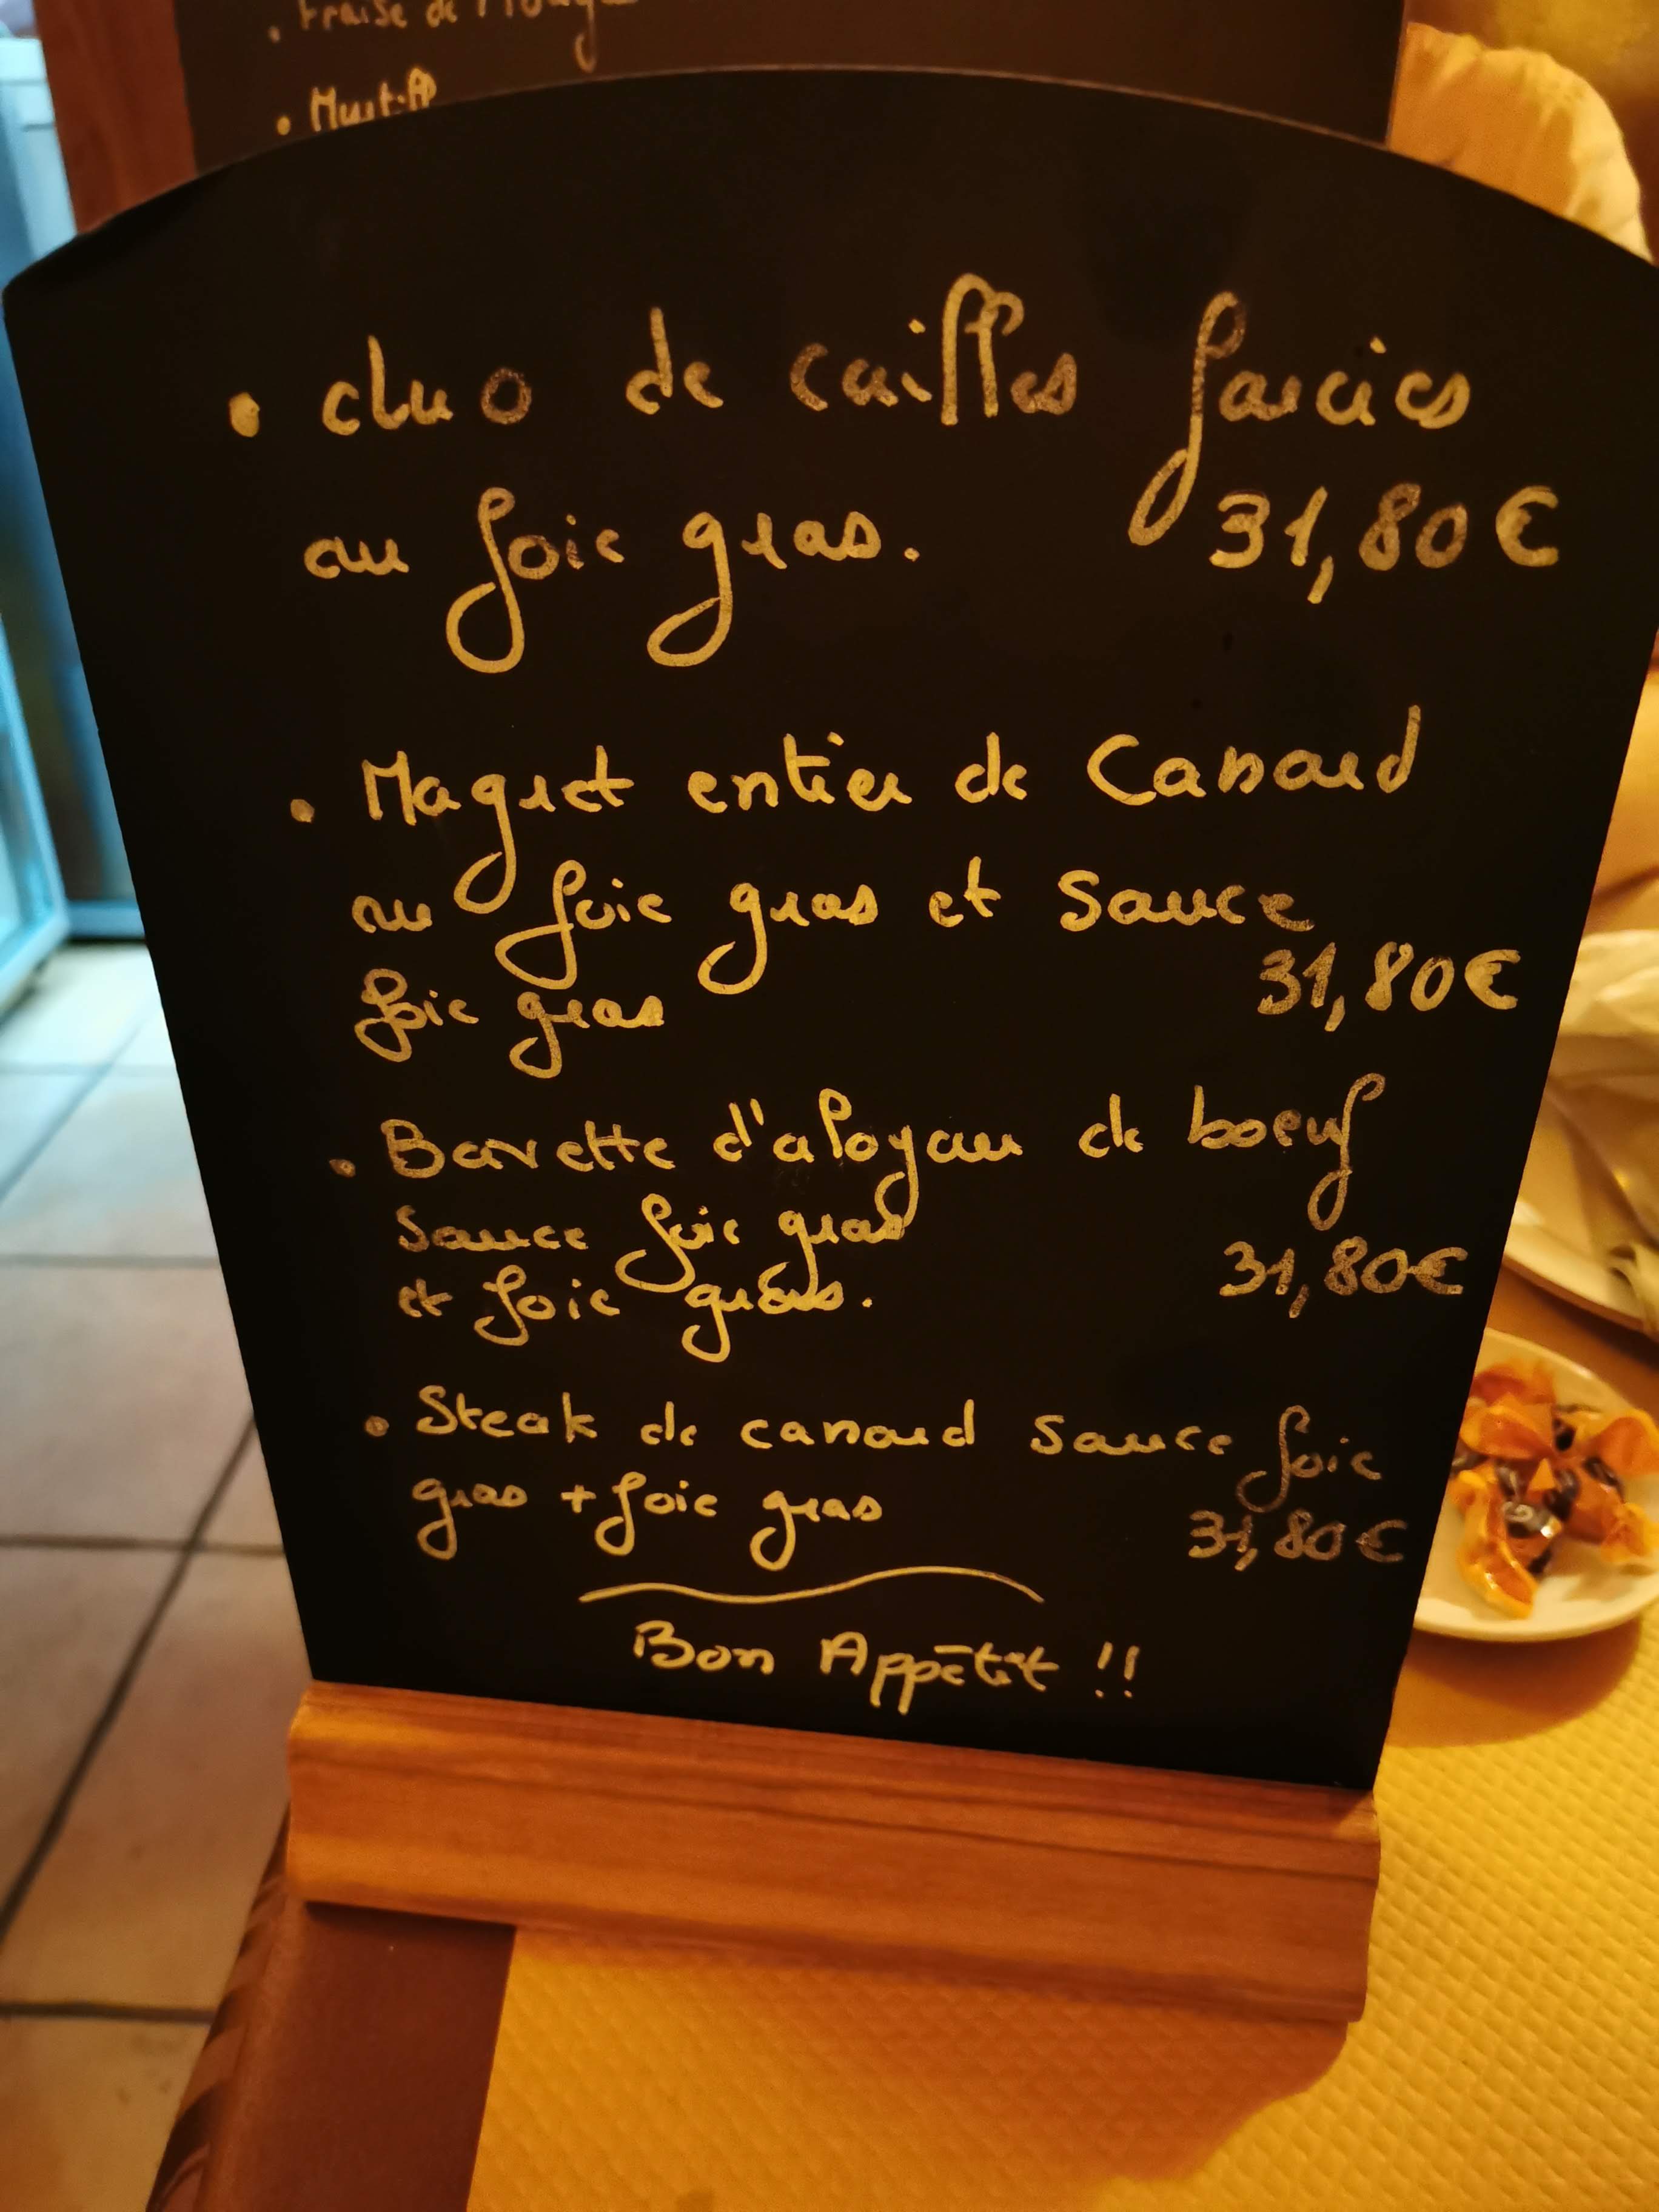 . Fraise de
. Must.
• duo de cailles farcies
au foie gras. 31,80€
• Magret entier de Canard
au foie gras et sauce
foie gras 31,80€
• Bavette d'aloyau de boeuf
Sauce foie gras
et foie gras. 31,80€
• Steak de canard sauce foie
gras + foie gras 31,80€
Bon Appétit !!